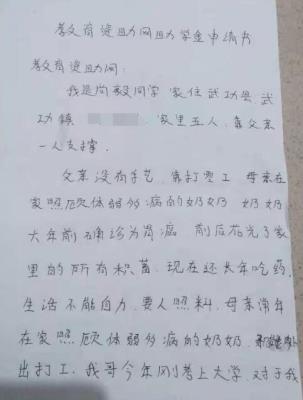 教育援助网助学金申请书
教育援助网:
我是尚毅同学 家住武功县武
功镇 家里五人,靠父亲
一人支撑.
父亲没有手艺,靠打零工 母亲在
家照顾体弱多病的奶奶 奶奶
大年前确诊为胃癌 前后花光了家
里的所有积蓄.现在还长年吃药.
生活不能自力,要人照料,母亲常年
在家照顾体弱多病的奶奶,
出打工.我哥今年刚考上大学,对于我